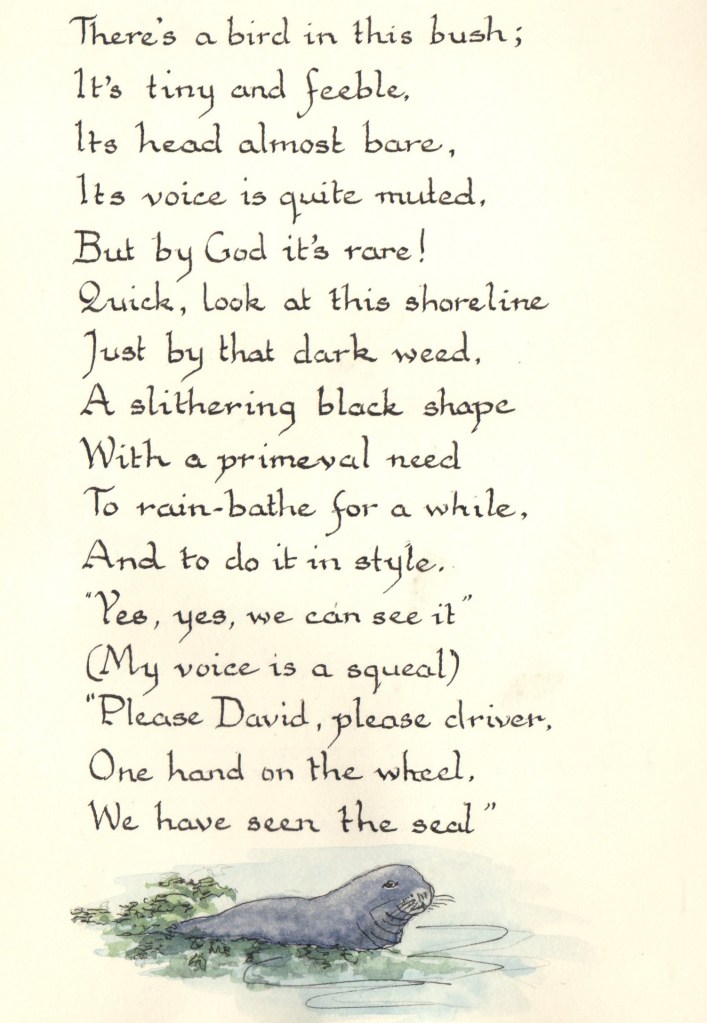 There's a bird in this bush;
It's tiny and feeble,
Its head almost bare,
Its voice is quite muted,
But by God it's rare!
Quick, look at this shoreline
Just by that dark weed,
A slithering black shape
With a primeval need
To rain-bathe for a while,
And to do it in style.
"Yes, yes, we can see it"
(My voice is a squeal)
"Please David, please driver,
One hand on the wheel,
We have seen the seal"